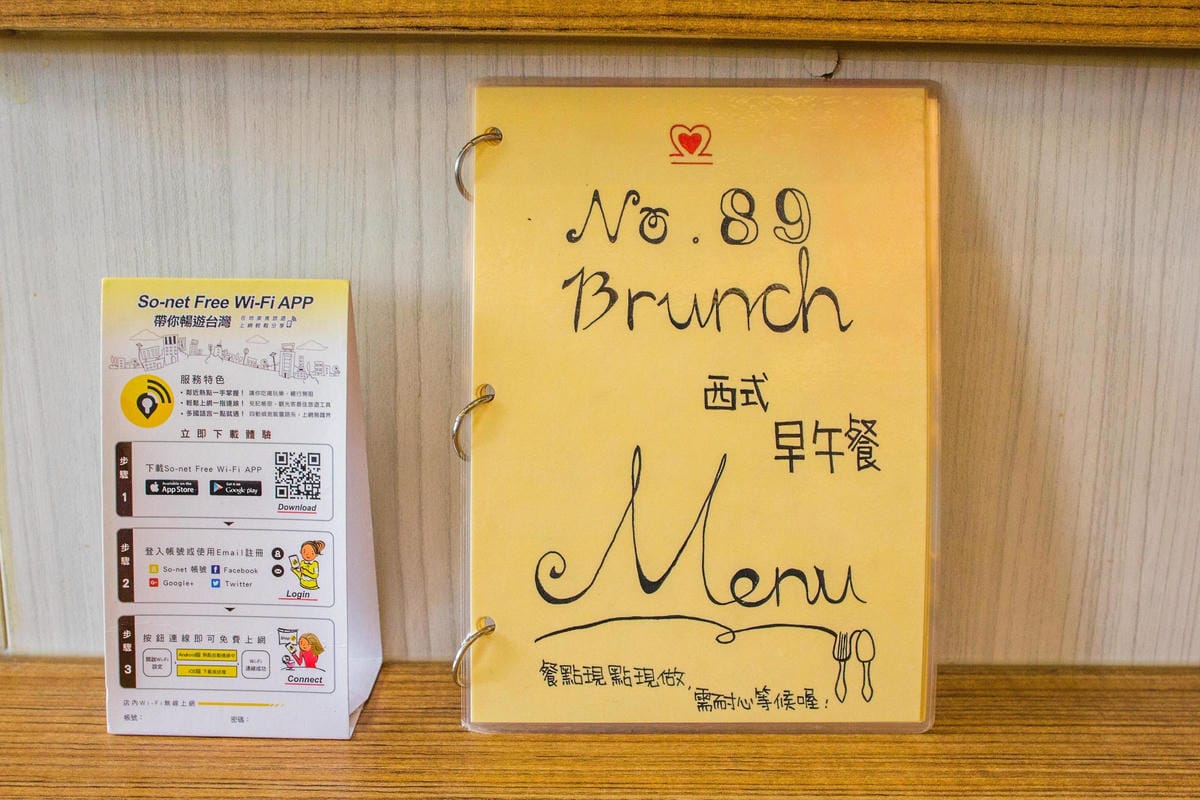 So-net Free Wi-Fi APP
帶你暢遊台灣
在地東進旅遊
上網輕鬆分享
服務特色
• 鄰近熱點一手掌握！
• 輕鬆上網一指連線！
• 多國語言一點就通！
立即下載體驗
步驟1
下載So-net Free Wi-Fi APP
Available on the App Store
Get it on Google play
Download
步驟2
登入帳號或使用Email註冊
So-net 帳號 Facebook
Google+ Twitter
Login
步驟3
按鈕連線即可免費上網
開啟Wi-Fi設定
Wi-Fi連線成功
Connect
店內Wi-Fi無線上網
帳號： 密碼：
No. 89
Brunch
西式
早午餐
Menu
餐點現點現做,
需耐心等候喔!